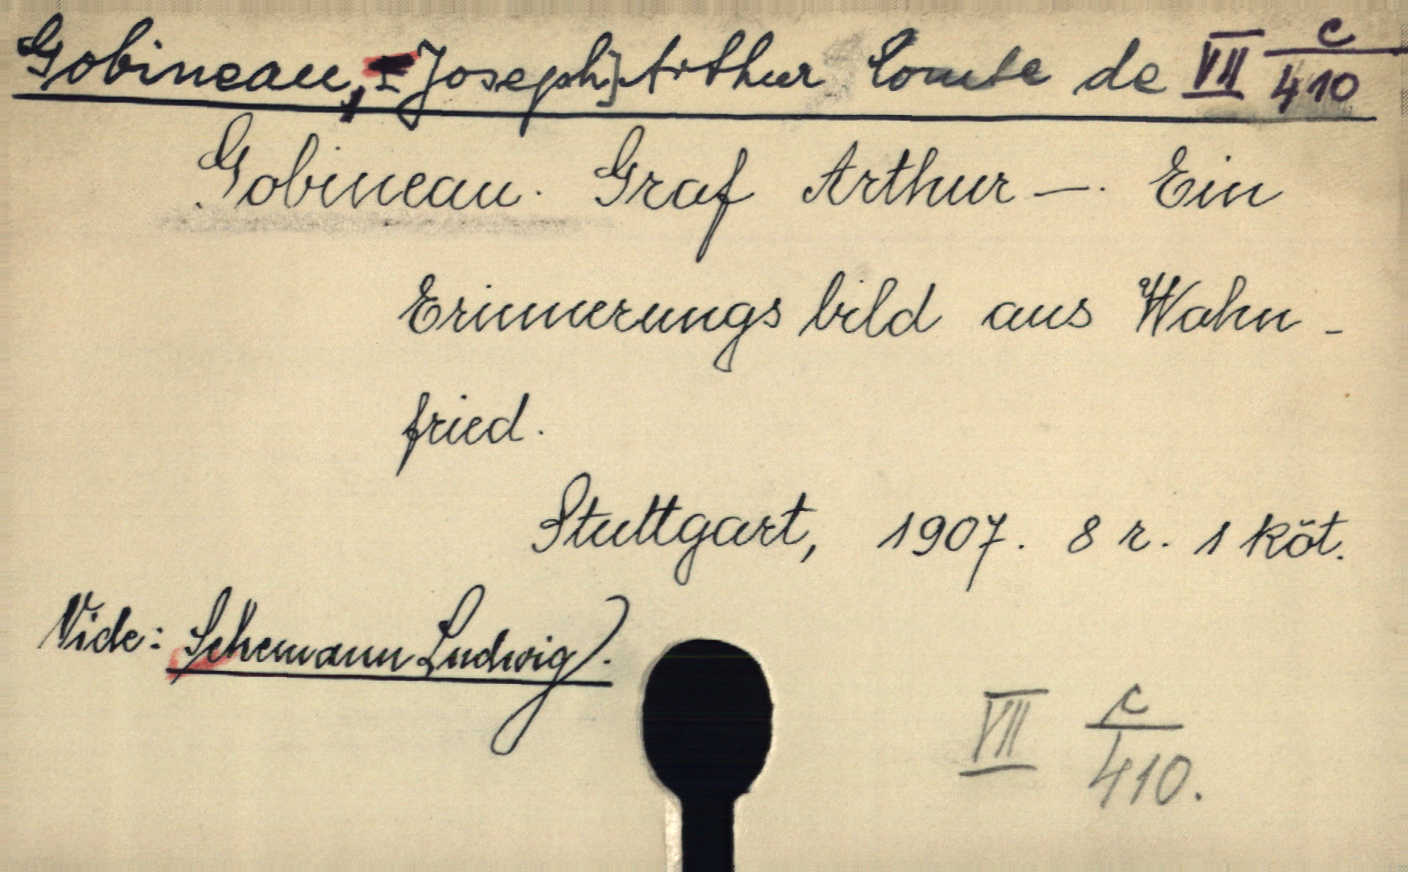 Gobineau, [Joseph] Arthur Comte de VII c/410
Gobineau. Graf Arthur —. Ein
Erinnerungsbild aus Wahn-
fried.
Stuttgart, 1907. 8 r. 1 köt.
Vide: Schemann Ludwig).
VII c/410.